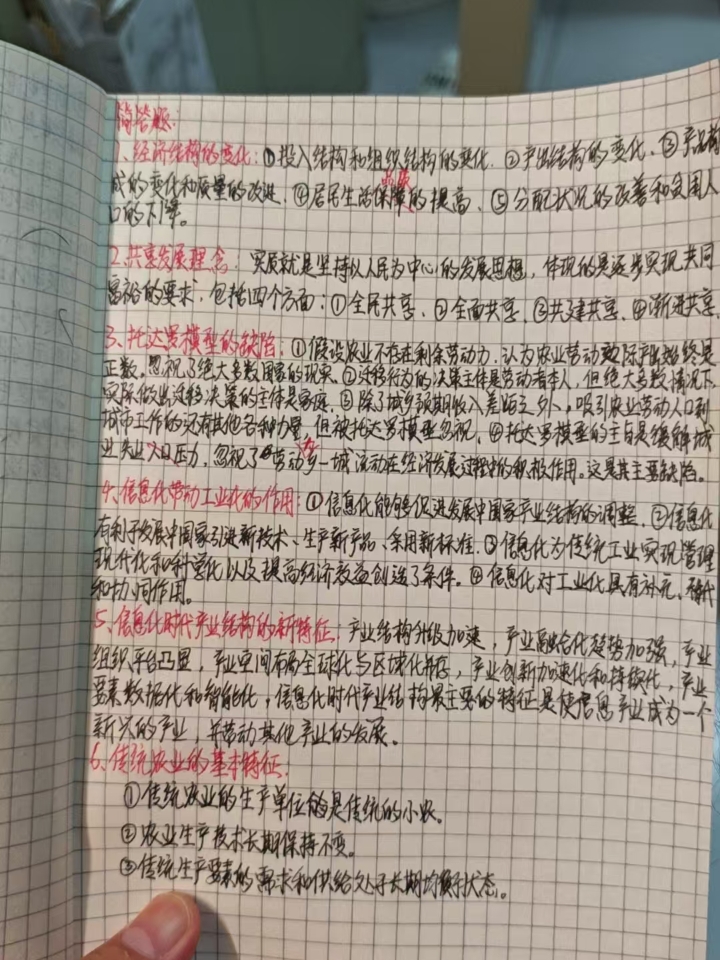 简答题:
1、经济结构的变化:①投入结构和组织结构的变化.②产出结构的变化.③产品构
成的变化和质量的改进.④居民生活保障的提高.⑤分配状况的改善和贫困人
口的下降。
2.共享发展理念:实质就是坚持以人民为中心的发展思想,体现的是逐步实现共同
富裕的要求.包括四个方面:①全民共享.②全面共享.③共建共享.④渐进共享.
3、托达罗模型的缺陷:①假设农业不存在剩余劳动力.认为农业劳动边际产出始终是
正数.忽视了绝大多数国家的现实.②迁移行为的决策主体是劳动者本人,但绝大多数情况下
实际做出迁移决策的主体是家庭.③除了城乡预期收入差距之外,吸引农业劳动人口到
城市工作的还有其他各种力量,但被托达罗模型忽视.④托达罗模型的主旨是缓解城
业失业人口压力,忽视了劳动力乡—城流动在经济发展过程中的积极作用。这是其主要缺陷。
4、信息化带动工业化的作用:①信息化能够促进发展中国家产业结构的调整.②信息化
有利于发展中国家引进新技术、生产新产品、采用新标准.③信息化为传统工业实现管理
现代化和科学化以及提高经济效益创造了条件。④信息化对工业化具有补充、替代
和协同作用。
5、信息化时代产业结构的新特征:产业结构升级加速,产业融合化趋势加强,产业
组织平台凸显,产业空间布局全球化与区域化并存,产业创新加速化和持续化,产业
要素数据化和智能化,信息化时代产业结构最主要的特征是使信息产业成为一个
新兴的产业,并带动其他产业的发展。
6、传统农业的基本特征.
①传统农业的生产单位是传统的小农。
②农业生产技术长期保持不变。
③传统生产要素的需求和供给处于长期均衡状态。